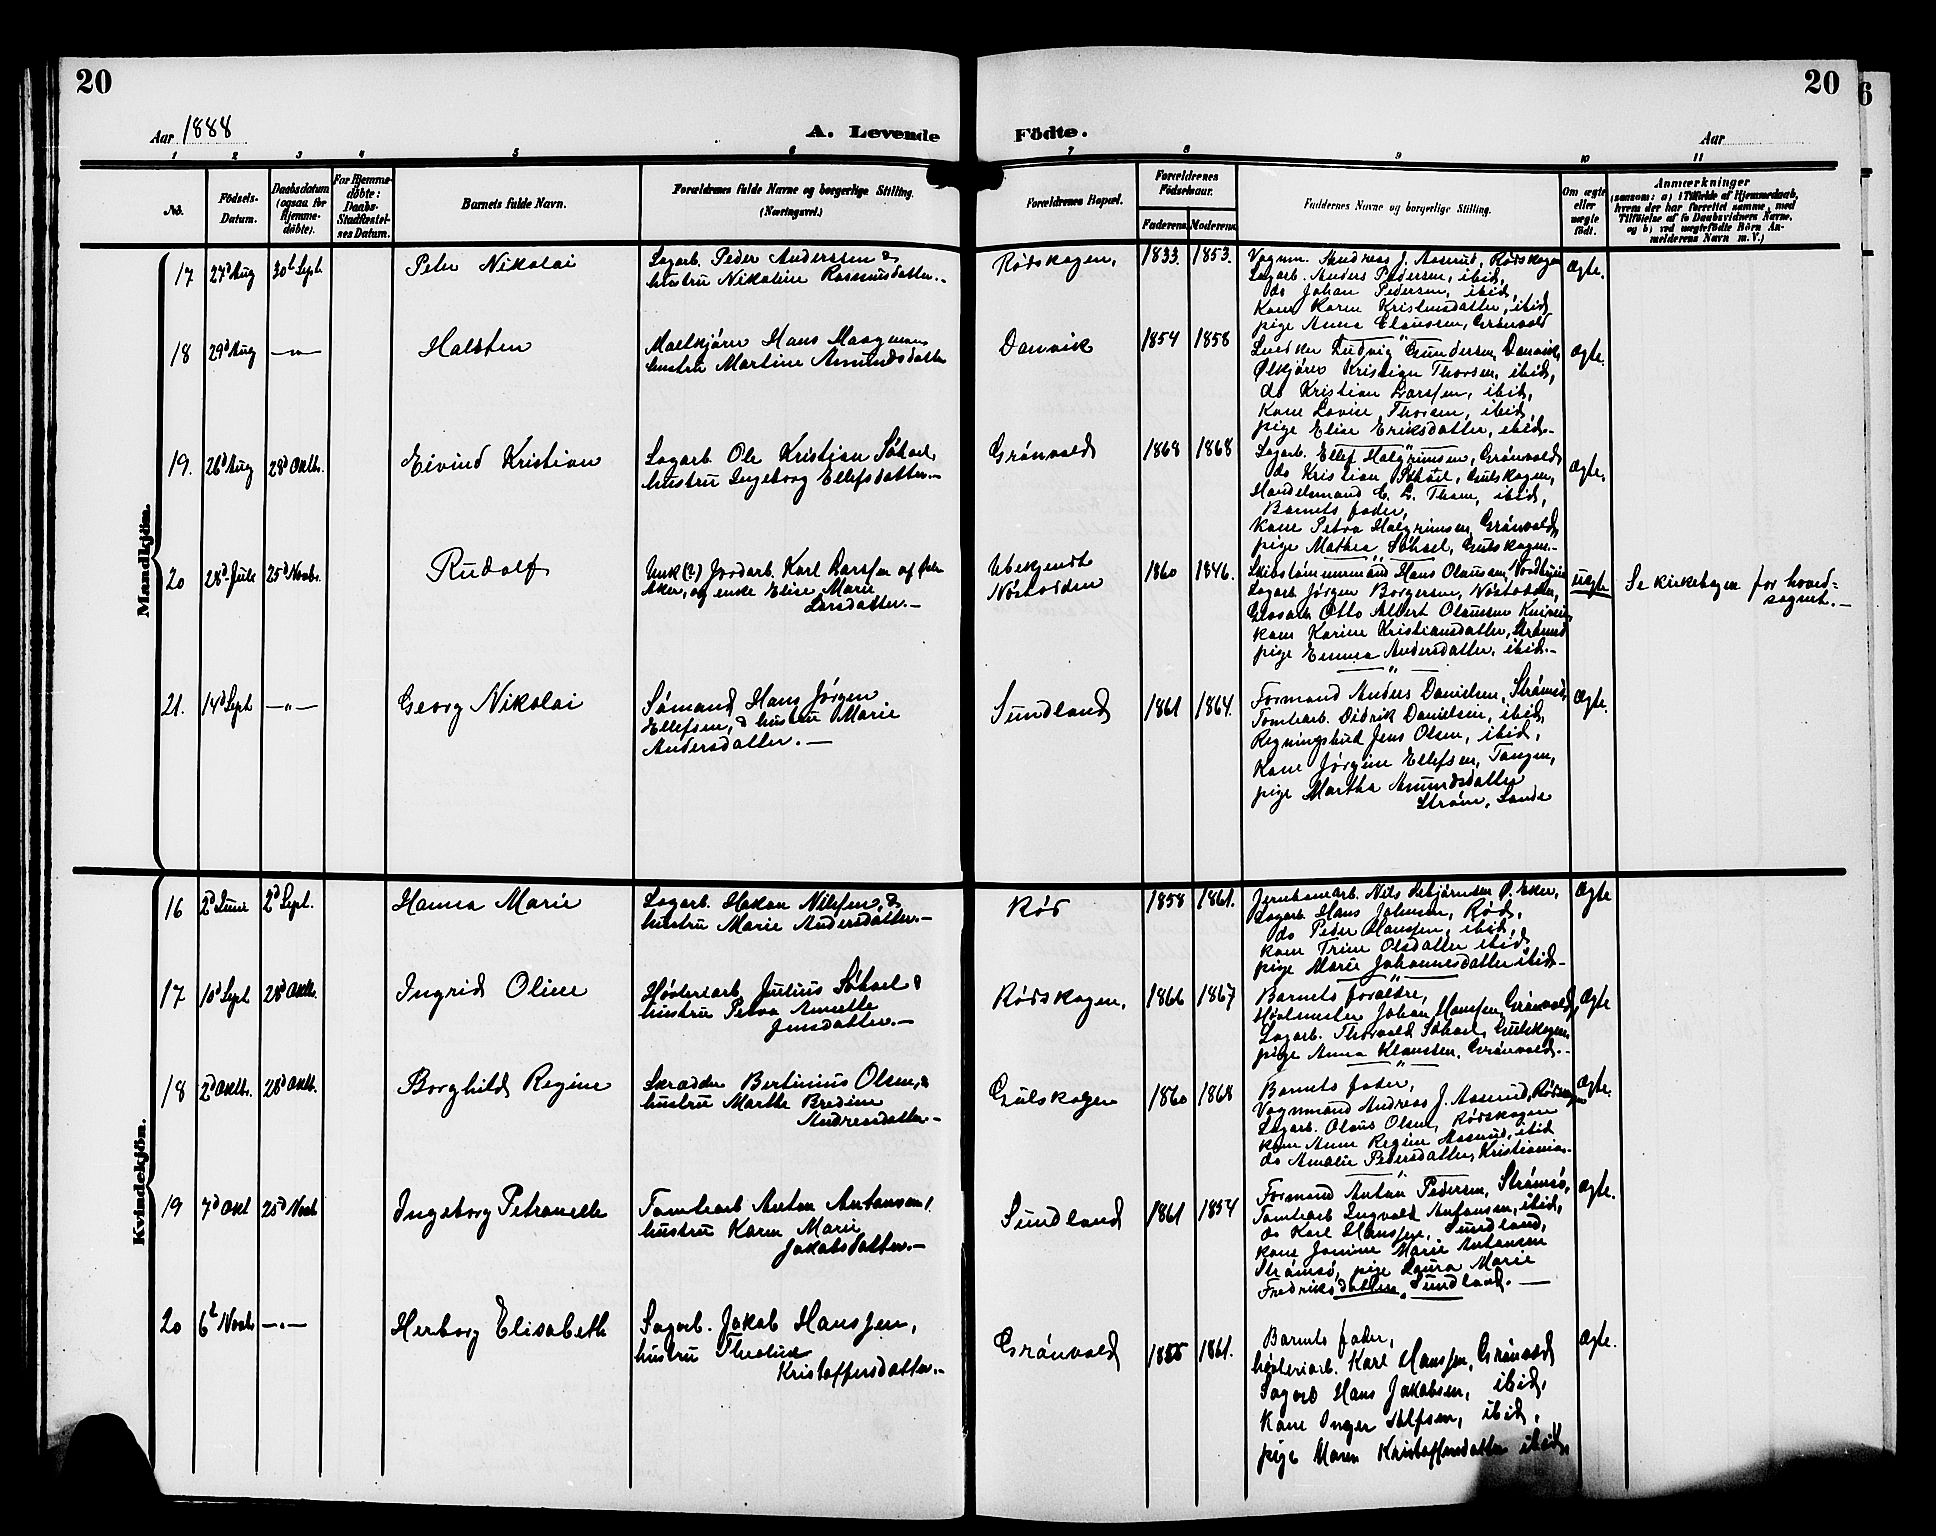 20
20
6
Aar 1888
A. Levende
Födte.
Aar
1 2 3 4 5 6 7 8 9 10 11
No.
Födsels-
Datum.
Daabsdatum
(ogsaa for
Hjemme-
döbte).
For Hjemme-
döbte:
Daabs-
Stadfæstel-
ses Datum.
Barnets fulde Navn.
Forældrenes fulde Navne og borgerlige Stilling.
(Næringsvei.)
Forældrenes Bopæl.
Forældrenes
Födselsaar.
Faderens. Moderens.
Faddernes Navne og borgerlige Stilling.
Om ægte
eller
uægte
födt.
Anmærkninger
(saasom: a) i Tilfælde af Hjemmedaab,
hvem der har forrettet samme, med
Tilföielse af to Daabsvidners Navne,
og b) ved uægtefödte Börn An-
melderens Navn m. V.)
Mandkjön.
17 27d Aug 30te Sept.
Peter Nikolai
Sagarb. Peder Anderssen &
hustru Nikoline Rasmusdatter.-
Rødskogen,
1833. 1853.
Vognm. Andreas J. Aaserud, Rødskogen
Sagarb. Anders Pedersen, ibid,
do Johan Pedersen, ibid,
Kone Karen Kristensdatter, ibid,
pige Anna Claussen, Grønvold
Ægte.
18 29d Aug —"—
Halsten
Maelkjører Hans Haagensen
hustru Martine Amundsdatter
Danvik
1854 1858
Snedker Ludvig Gundersen, Danvik,
Ølkjører Kristian Thorsen, ibid,
do Kristian Larssen, ibid,
Kone Lovise Thorsen, ibid,
pige Elise Eriksdatter, ibid.-
Ægte.
19. 26d Aug 28d Oktb.
Eivind Kristian
Sagarb. Ole Kristian Søhoel,
hustru Ingeborg Ellefsdatter.-
Grønvold
1868 1868
Sagarb. Ellef Halgrimsen, Grønvold,
do Kristian Søhoel, Gulskogen,
Handelsmand C. L. Thom, ibid,
Barnets fader,
Kone Petra Halgrimsen, Grønvold,
pige Mathea Søhoel, Gulskogen.-
Ægte.
20 28d Juli 25d Novbr.
Rudolf
Unk(?) Jordarb. Karl Larssen af Øvre
Eker, og enke Elise Marie
Larsdatter.-
Ubekjendt
Nøstodden
1860 1846.
Skibstømmermand Hans Olaussen, Nordbyeie
Sagarb. Jørgen Borgersen, Nøstodden,
Otto Albert Olaussen
Kone Karine Kristiansdatter, Strømsø
pige Emma Andersdatter, ibid.-
uægte
Se kirkebogen for hoved-
sognet.-
21. 14d Sept —"—
Georg Nikolai
Sømand Hans Jørgen
Ellefsen, & hustru Marie
Andersdatter.-
Sundland
1861 1864.
Formand Anders Danielsen, Strømsø,
Tomtearb. Didrik Danielsen, ibid,
Regningsbud Jens Olsen, ibid,
Kone Jørgine Ellefsen, Tangen,
pige Martha Amundsdatter
Strøm, Sande
Ægte.
Kvindekjön.
16 2d Juni 2d Sept.
Hanna Marie
Sagarb. Hakon Nilssen, &
hustru Marie Andersdatter.-
Rød
1858 1861.
Jernbanearb. Nils Asbjørnsen Ø. Eker,
Sagarb. Hans Johnsen, Rød,
do Peder Hanssen, ibid,
Kone Trine Olsdatter ibid,
pige Marie Johannesdatter ibid.-
Ægte
17 10d Sept 28d Oktb.
Ingrid Oline
Høvleriarb. Julius Søhoel &
hustru Petra Annette
Jensdatter.-
Rødskogen,
1866 1867
Barnets forældre,
Høvlmester Johan Hanssen, Grønvold,
Sagarb. Thorvald Søhoel, Gulskogen,
pige Anna Klaussen, Grønvold.-
Ægte
18 2d Oktb. 28d Oktb.
Borghild Regine
Skrædder Bertinius Olsen, &
hustru Marthe Bredine
Andreasdatter.-
Gulskogen
1860 1868
Barnets fader,
Vognmand Andreas J. Aaserud, Rødskogen
Sagarb. Olaus Olsen, Rødskogen
Kone Anne Regine Aaserud, ibid
do Amalie Pedersdatter, Kristiania.-
Ægte.
19 7d Okt 25d Novb
Ingeborg Petronelle
Tomtearb Anton Antonsen &
hustru Karen Marie
Jakobsdatter.-
Sundland
1861 1854
Formand Anton Pedersen, Strømsø,
Tomtearb Ingvald Antonsen, ibid,
do Karl Hanssen, Sundland,
Kone Janine Marie Antonsen
Strømsø, pige Laura Marie
Fredriksdatter, Sundland.-
Ægte.
20 6te Novb —"—
Herborg Elisabeth
Sagarb. Jakob Hanssen,
hustru Theoline
Kristoffersdatter.-
Grønvold
1855 1861.
Barnets fader,
høvleriarb. Karl Hanssen, Grønvold
Sagarb Hans Jakobsen, ibid,
Kone Inger Ellefsen, ibid,
pige Maren Kristoffersdatter ibid.
Ægte.